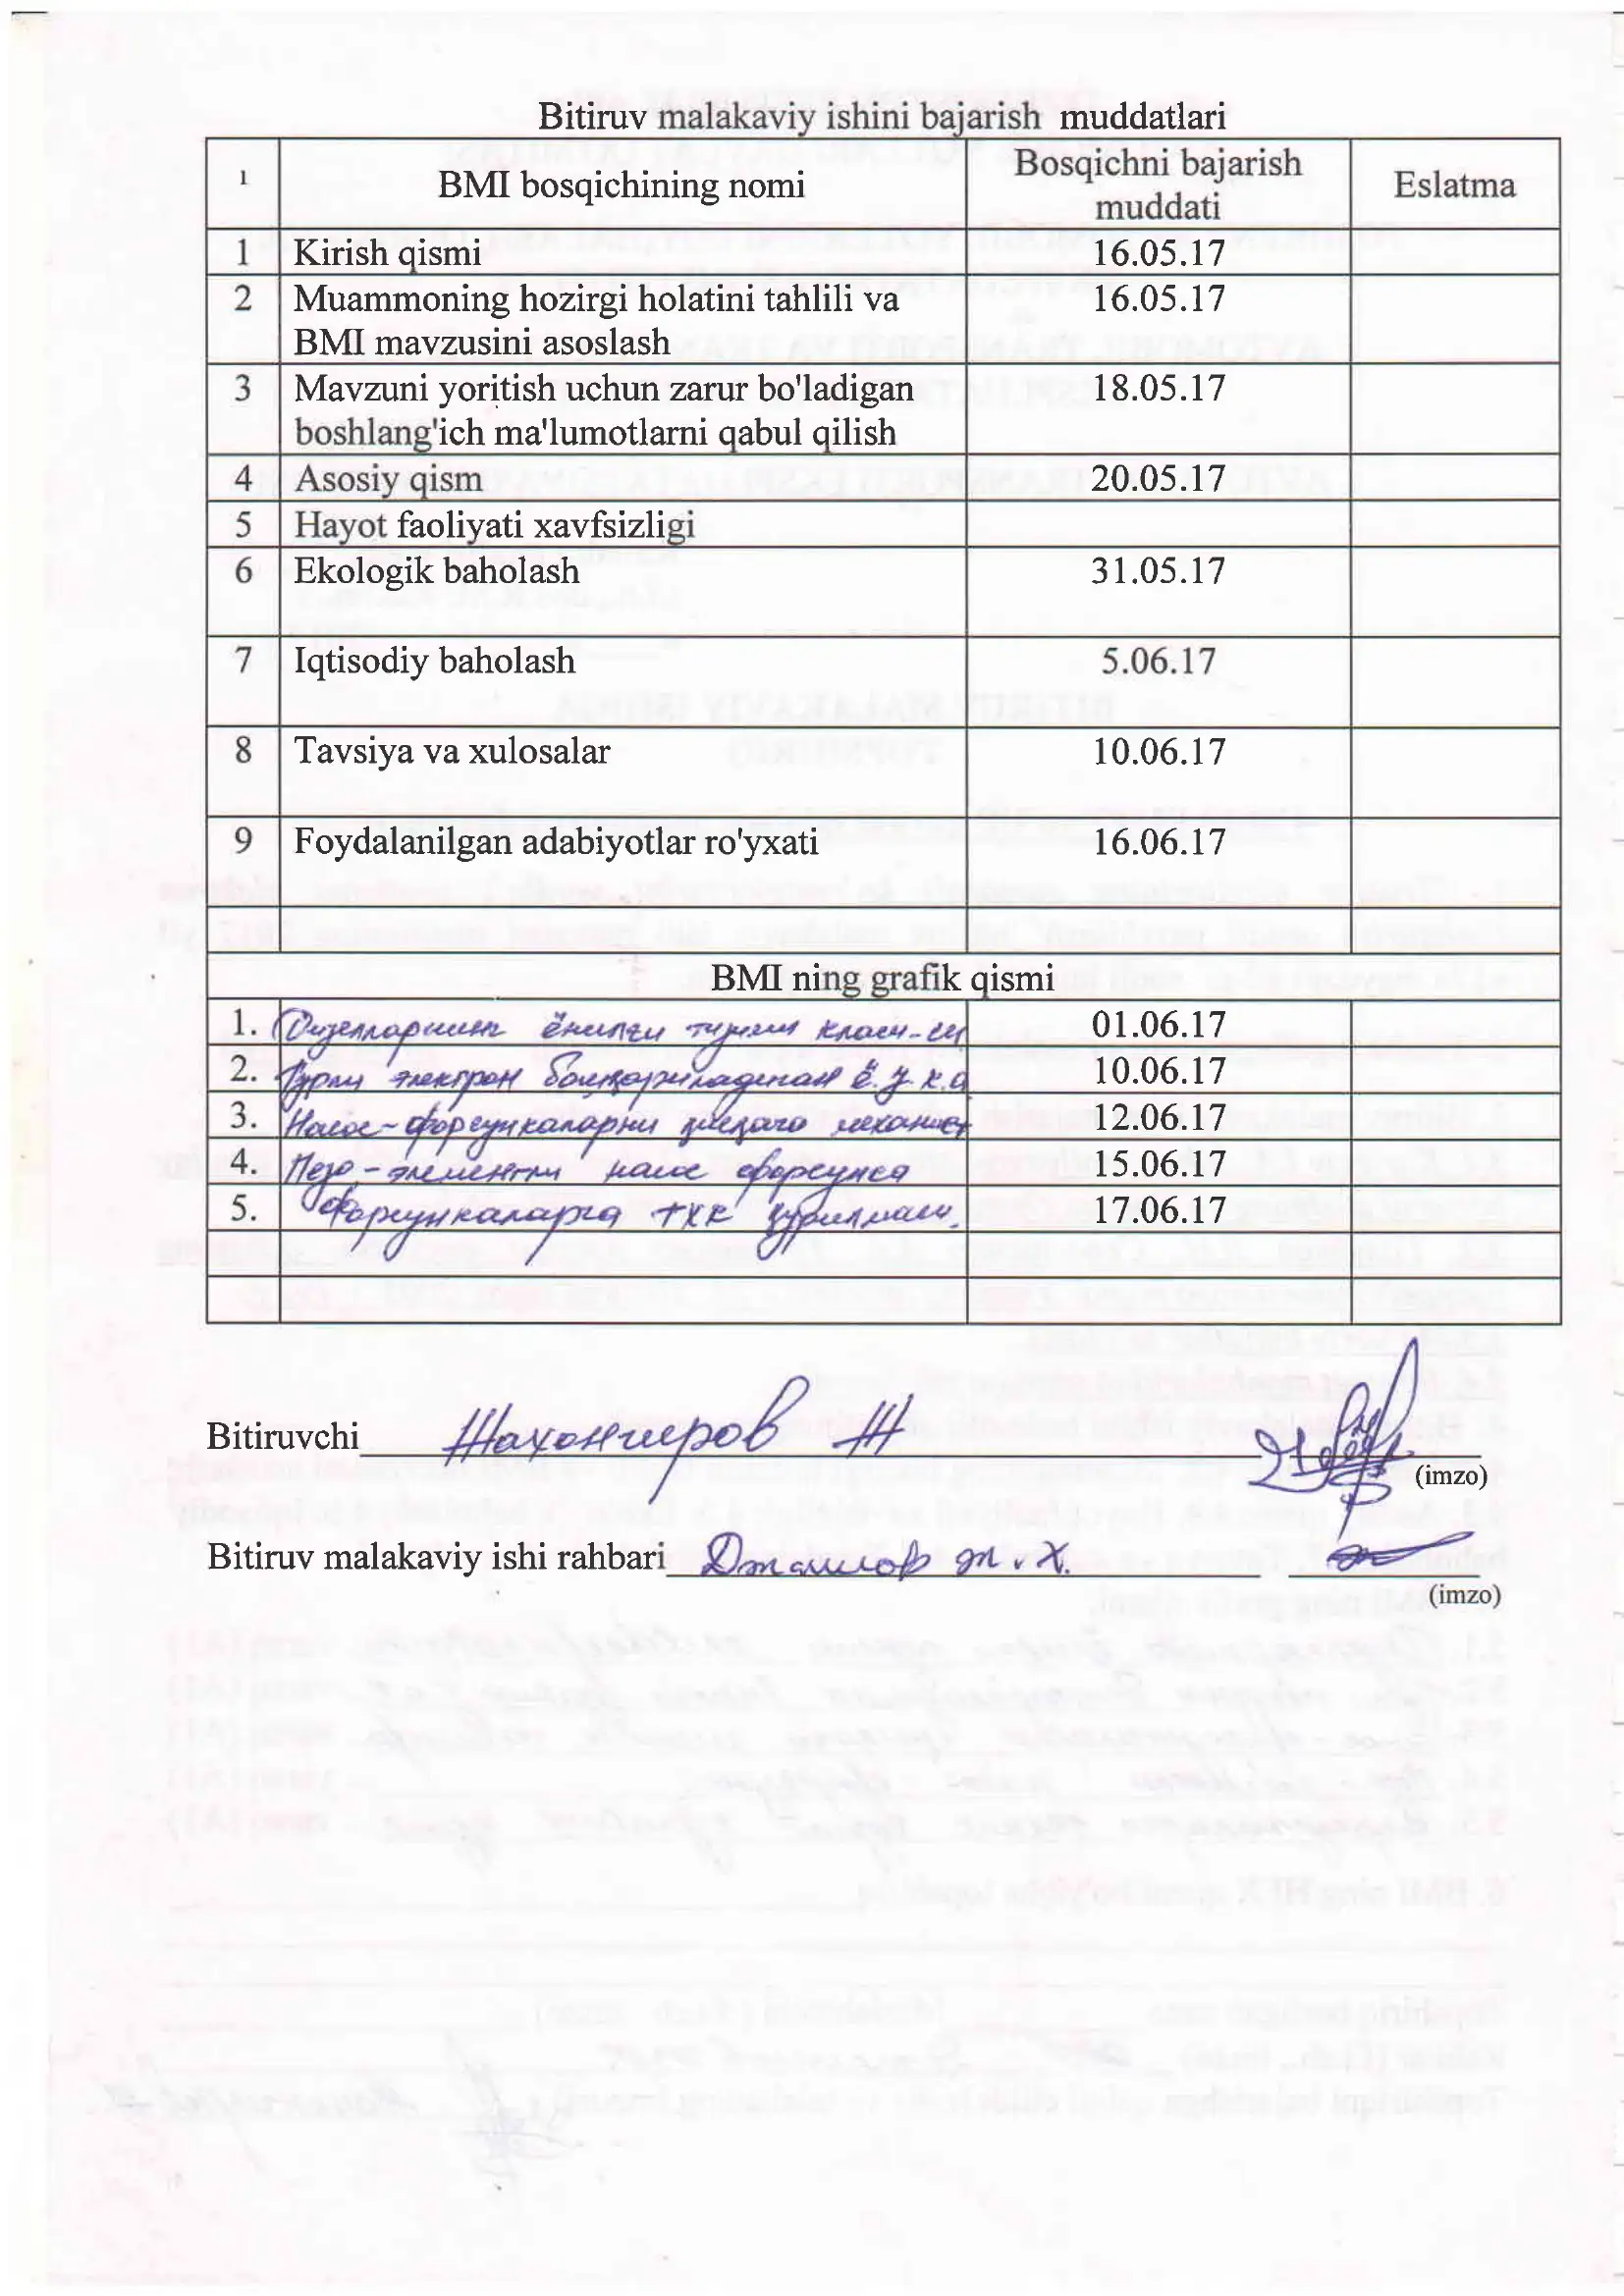 Bitiruv malakaviy ishini bajarish muddatlari
1 BMI bosqichining nomi Bosqichni bajarish muddati Eslatma
1 Kirish qismi 16.05.17
2 Muammoning hozirgi holatini tahlili va 16.05.17
BMI mavzusini asoslash
3 Mavzuni yoritish uchun zarur bo'ladigan 18.05.17
boshlang'ich ma'lumotlarni qabul qilish
4 Asosiy qism 20.05.17
5 Hayot faoliyati xavfsizligi
6 Ekologik baholash 31.05.17
7 Iqtisodiy baholash 5.06.17
8 Tavsiya va xulosalar 10.06.17
9 Foydalanilgan adabiyotlar ro'yxati 16.06.17
BMI ning grafik qismi
1. Дизелларнинг ёнилғи 01.06.17
2. Турли электрон бошқариладиган ё.у.к.а 10.06.17
3. Насос-форсункаларни 12.06.17
4. Пезо-элементли насос форсунка 15.06.17
5. Форсункаларга ТХК 17.06.17
Bitiruvchi Жахонгиров Ж
(imzo)
Bitiruv malakaviy ishi rahbari Ж.Х.
(imzo)